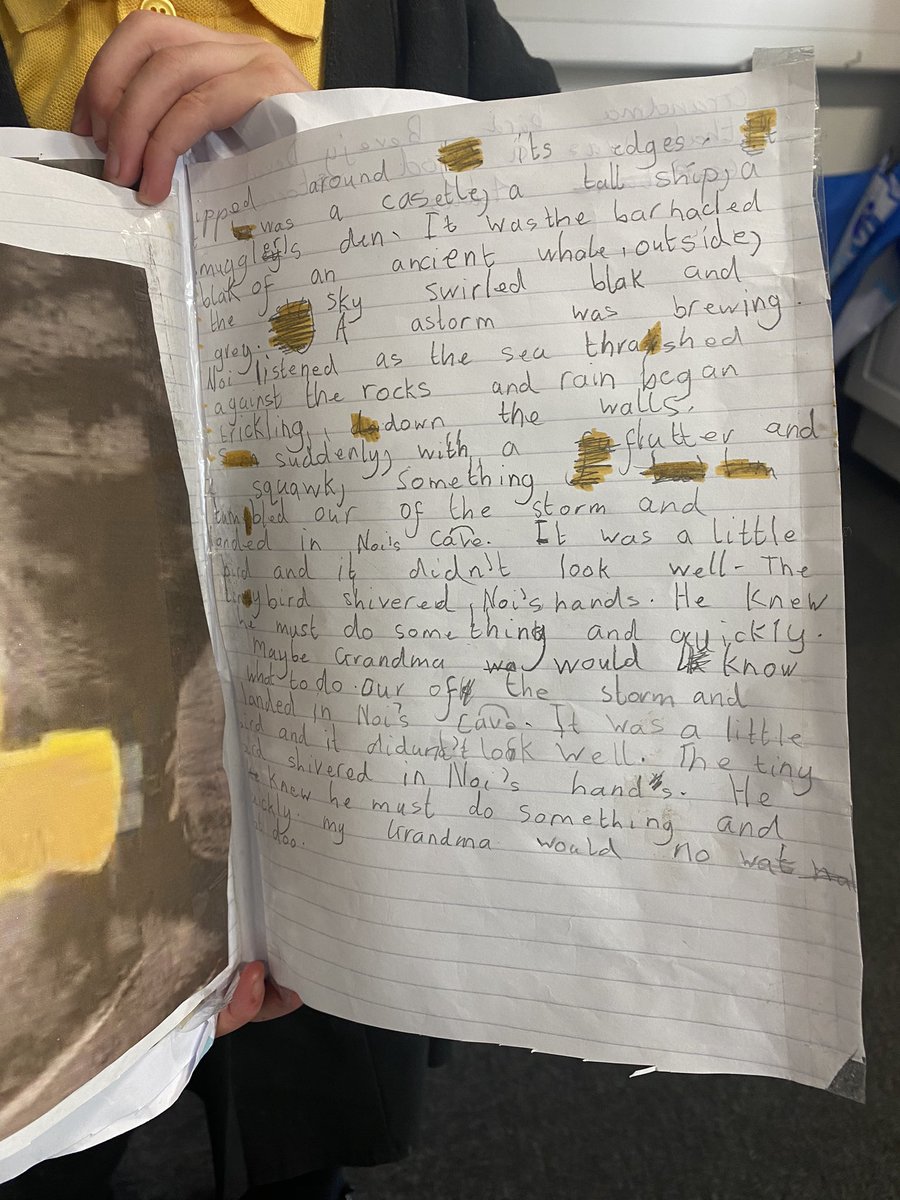 ipped around its edges. It
was a casetle, a tall ship, a
mugglers den. It was the barnacled
blak of an ancient whale, outside,
the sky swirled blak and
grey. A astorm was brewing.
Noi listened as the sea thrashed
against the rocks and rain began
trickling, down the walls.
suddenly, with a flutter and
squawk, something
tumbled our of the storm and
landed in Noi's cave. It was a little
bird and it didn't look well. The
tiny bird shivered, Noi's hands. He knew
he must do something and quickly.
maybe Grandma would know
what to do. our of the storm and
landed in Noi's cave. It was a little
bird and it didun't look well. The tiny
bird shivered in Noi's hands. He
knew he must do something and
uickly. my Grandma would no wat
doo.